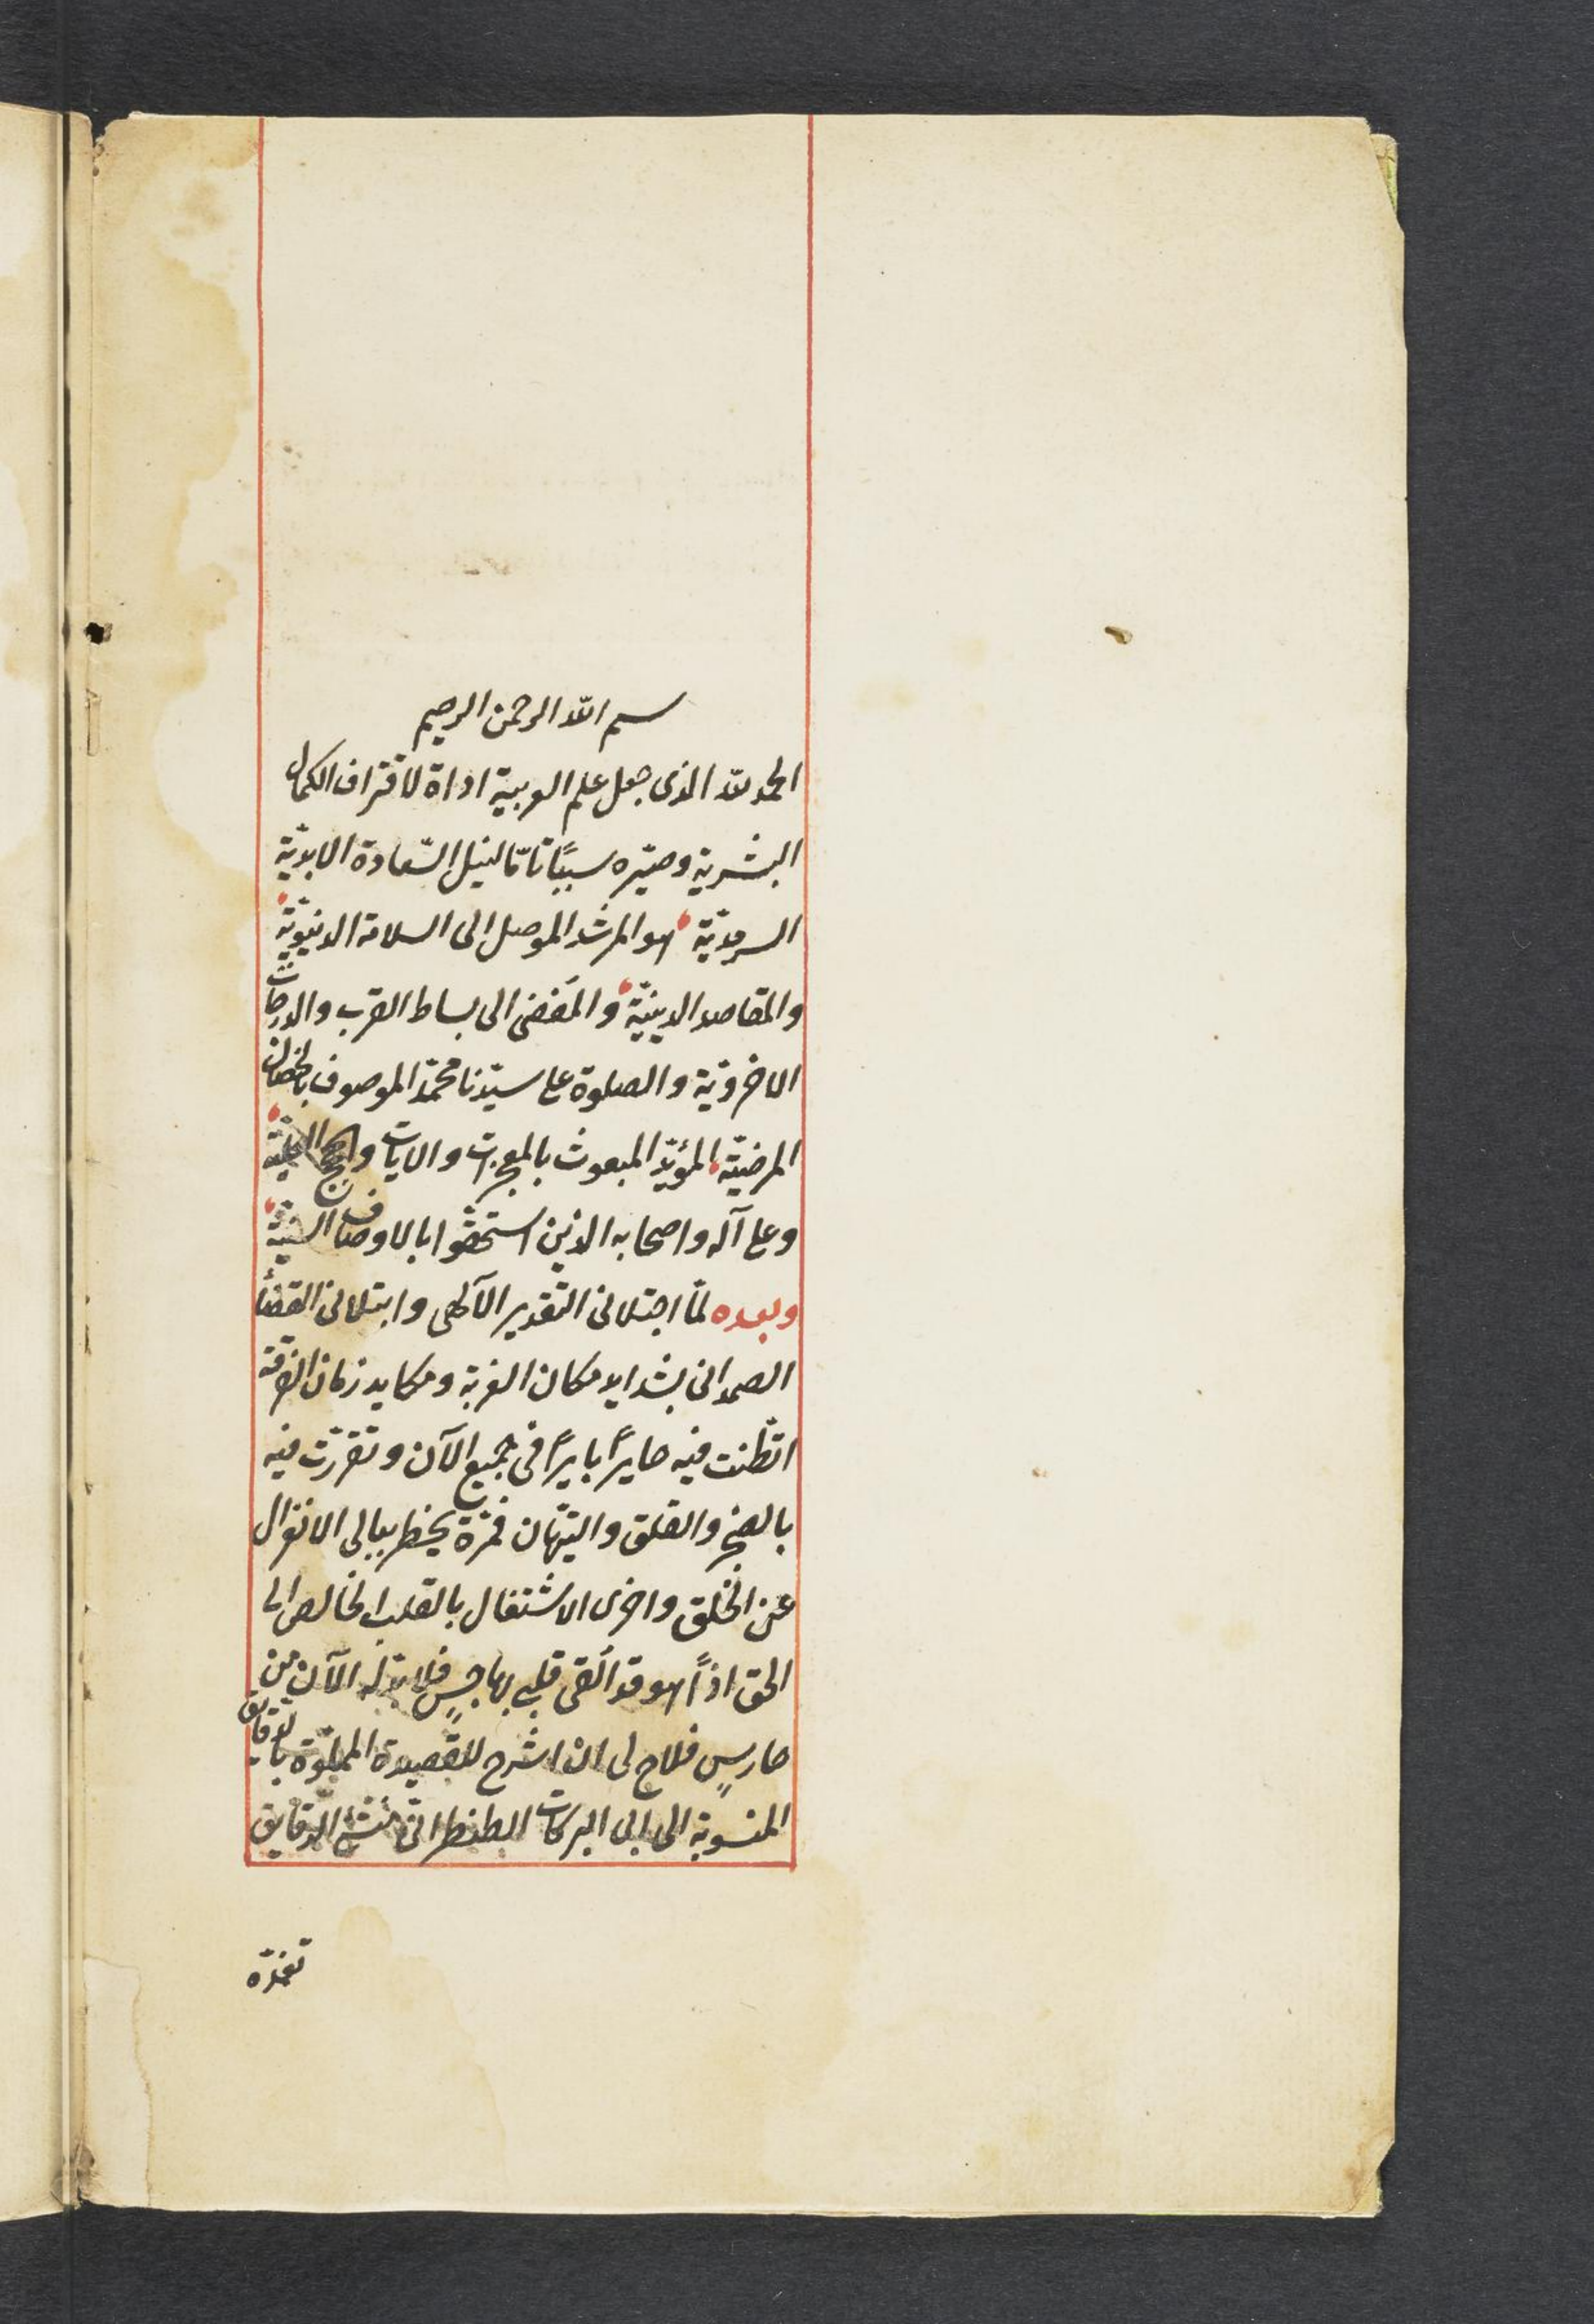 بسم الله الرحمن الرحيم
الحمد لله الذى جعل علم العربية اداة لاقتراف الكمال
البشرية وصيّره سببًا تامّا لنيل السّعادة الابديّة
السرمديّة هو المرشد الموصل الى السلامة الدنيويّة
والمقاصد الدينيّة والمفضى الى بساط القرب والدرجات
الاخرويّة والصلوة على سيّدنا محمّد الموصوف بالخصال
المرضيّة المؤيّد المبعوث بالمعجزات والايات والحجج العليّة
وعلى آله واصحابه الذين استحقّوا بالاوصاف السنيّة
وبعده لمّا اجتلانى التقدير الآلهى وابتلانى القضاء
الصمدانى بشدايد مكان الغربة ومكايد زمان الفرقة
اتطّنت فيه حايرًا بايرًا فى جميع الآن وتقررّت فيه
بالضج والقلق والتيهان فمرّة يخطر ببالى الانعزال
عن الخلق واخرى الاشتغال بالقلب الخالص الى
الحق اذًا هو قد ألقى قلبى بهاجسٍ فلا بدّ له الآن من
حارسٍ فلاح لى ان اشرح للقصيدة المملوّة بالدقايق
المنسوبة الى ابى البركات الطنطرانى منشئ الدقايق
تغمّده